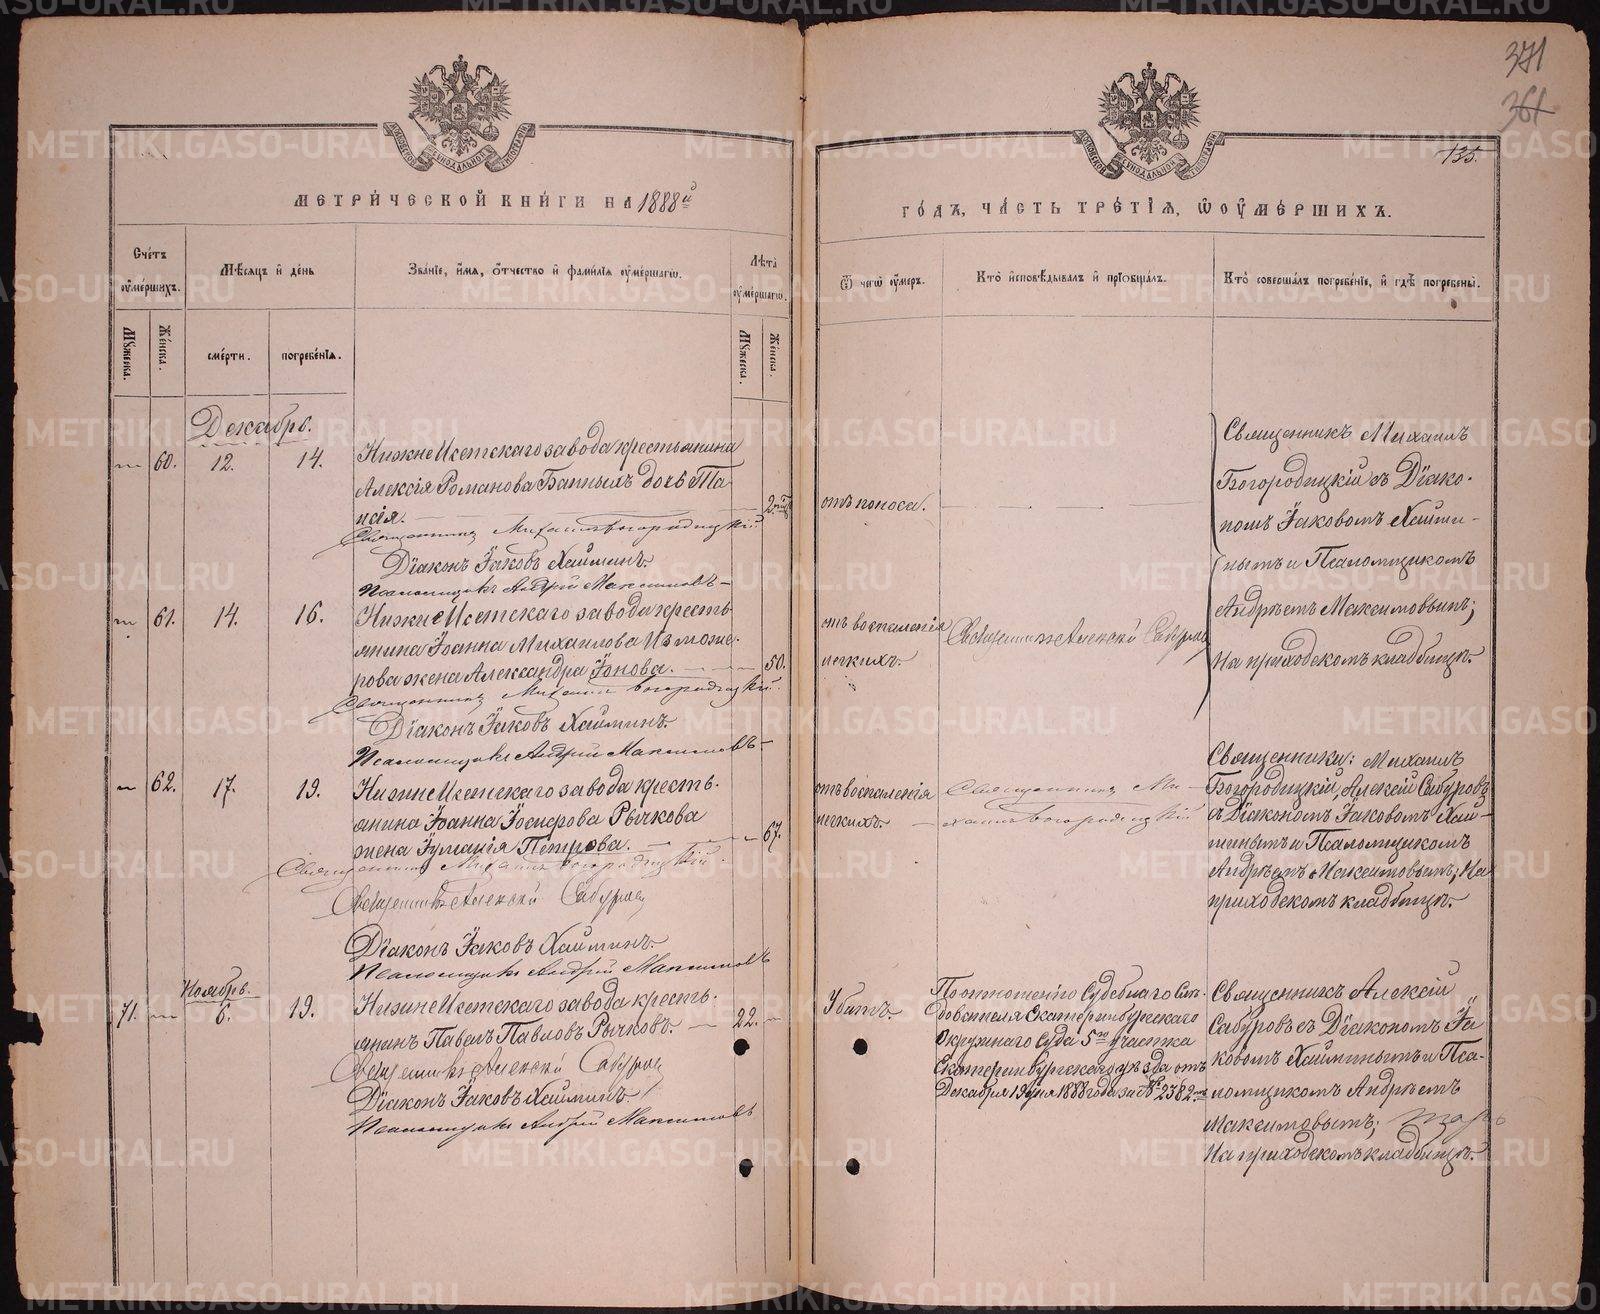 371
361
135.
МЕТРИ́ЧЕСКОЙ КНИ́ГИ НА 1888й
ГО́ДЪ, ЧА́СТЬ ТРЕ́ТІЯ, Ѡ ОУМЕ́РШИХЪ.
Сче́тъ оумершихъ.
Мѣсяцъ и день
Зва́ніе, и́мя, о́тчество и фами́лія оуме́ршагѡ.
Лѣта оуме́ршагѡ.
Ѿ чегѡ оумеръ.
Кто исповѣдывалъ и пріобщалъ.
Кто соверша́лъ погребе́ніе, и гдѣ погребены́.
Мужеска.
Женска.
смерти.
погребенія.
Мужеска.
Женска.
Декабрь.
60. 12. 14.
Нижне Исетскаго завода крестьянина
Алексія Романова Банныхъ дочь Та-
исія. — 2
Священникъ Михаилъ Богородицкій
Діаконъ Іаковъ Хайминъ.
Псаломщикъ Андрій Максимовъ
отъ поноса.
Священникъ Михаилъ
Богородицкій съ Діако-
номъ Іаковомъ Хайми-
нымъ и Псаломщикомъ
Андреемъ Максимовымъ;
На приходскомъ кладбищѣ.
61. 14. 16.
Нижне Исетскаго завода кресть-
янина Іоанна Михайлова Изможе-
рова жена Александра Іонова. — 50.
Священникъ Михаилъ Богородицкій.
Діаконъ Іаковъ Хайминъ.
Псаломщикъ Андрій Максимовъ
отъ воспаленія
легкихъ.
Священникъ Алексій Сабуровъ
62. 17. 19.
Нижне Исетскаго завода кресть-
янина Іоанна Іосифова Рычкова
жена Іуліанія Петрова. — 67.
Священникъ Михаилъ Богородицкій.
Священникъ Алексій Сабуровъ
Діаконъ Іаковъ Хайминъ.
Псаломщикъ Андрій Максимовъ
отъ воспаленія
легкихъ.
Священникъ Ми-
хаилъ Богородицкій
Священники: Михаилъ
Богородицкій, Алексій Сабуровъ
съ Діакономъ Іаковомъ Хай-
минымъ и Псаломщикомъ
Андреемъ Максимовымъ; На
приходскомъ кладбищѣ.
Ноябрь.
71. 6. 19.
Нижне Исетскаго завода кресть-
янинъ Павелъ Павловъ Рычковъ. — 22.
Священникъ Алексій Сабуровъ
Діаконъ Іаковъ Хайминъ
Псаломщикъ Андрій Максимовъ
Убитъ.
По отношенію Судебнаго Слѣ-
дователя Екатеринбургскаго
Окружнаго Суда 5го участка
Екатеринбургскаго уѣзда отъ
Декабря 19 дня 1888 года за № 2382.
Священникъ Алексій
Сабуровъ съ Діакономъ Іа-
ковомъ Хайминымъ и Пса-
ломщикомъ Андреемъ
Максимовымъ;
На приходскомъ кладбищѣ.
METRIKI.GASO-URAL.RU